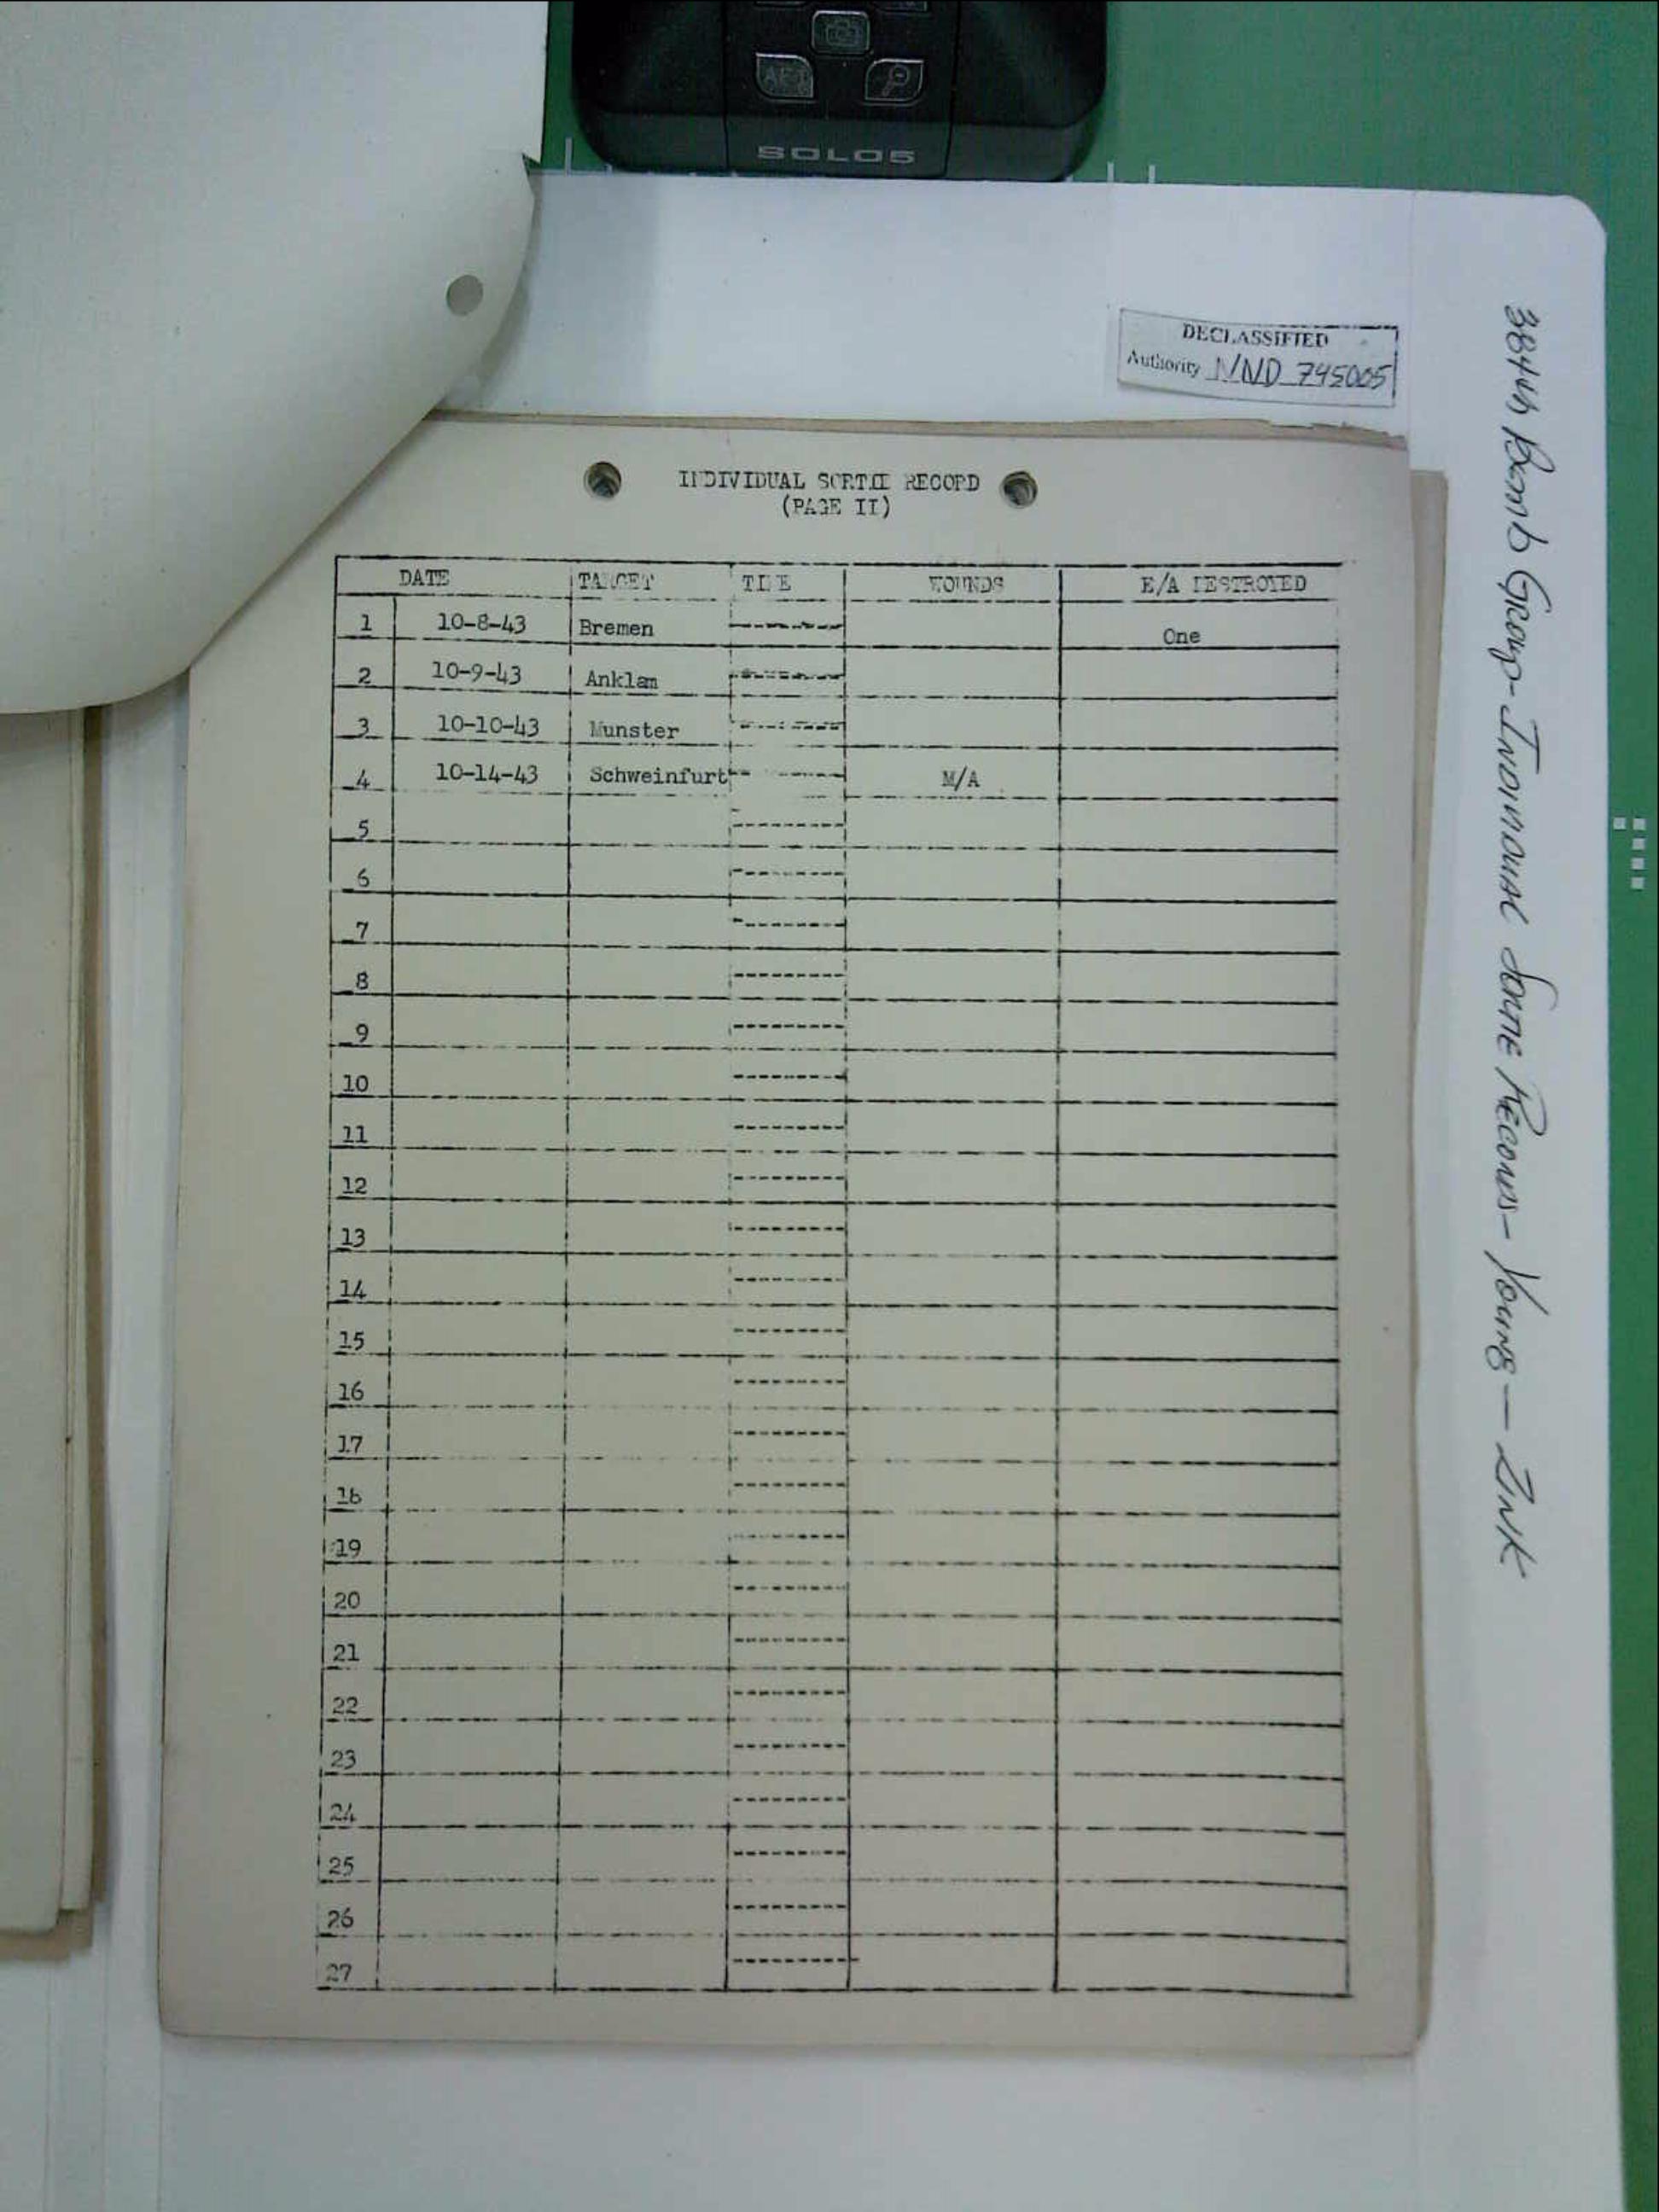 SOLO5
DECLASSIFIED
Authority NND 745005
INDIVIDUAL SORTIE RECORD
(PAGE II)
DATE TARGET TIME WOUNDS E/A DESTROYED
1 10-8-43 Bremen One
2 10-9-43 Anklam
3 10-10-43 Munster
4 10-14-43 Schweinfurt M/A
5
6
7
8
9
10
11
12
13
14
15
16
17
18
19
20
21
22
23
24
25
26
27
384th Bomb Group - Individual Sortie Records - Young - Zink